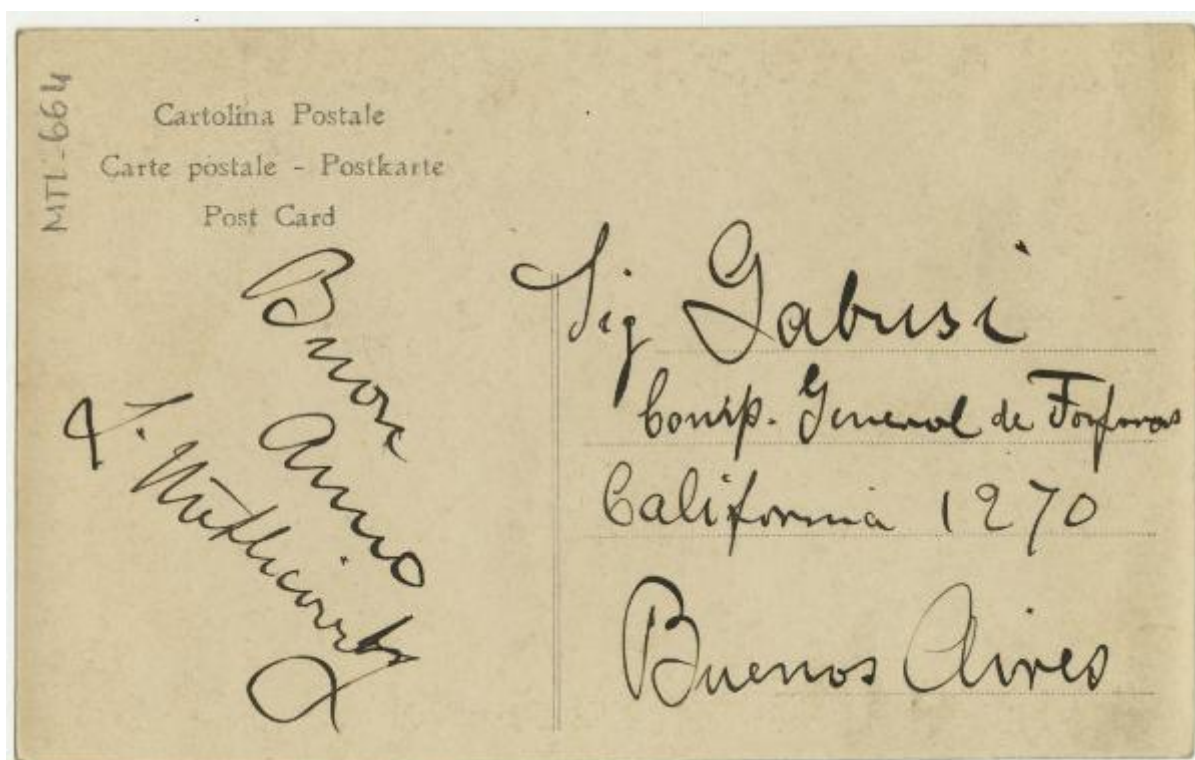 MTL-664
Cartolina Postale
Carte postale - Postkarte
Post Card
Buon
Anno
L. Metlicovitz
Sig Gabusi
Comp. General de Fosforos
California 1270
Buenos Aires